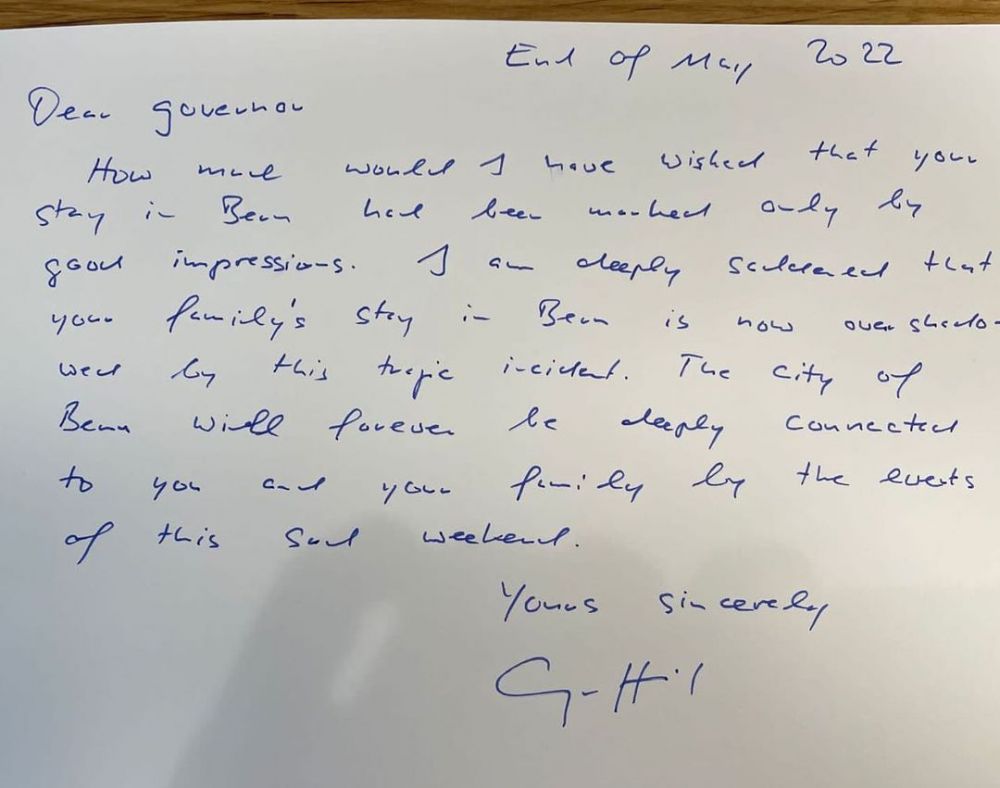 End of May 2022
Dear governor
How much would I have wished that your
stay in Bern had been marked only by
good impressions. I am deeply saddened that
your family's stay in Bern is now overshado-
wed by this tragic incident. The city of
Bern will forever be deeply connected
to you and your family by the events
of this sad weekend.
Yours sincerely